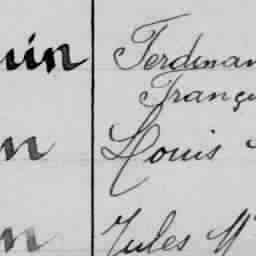 uin Ferdinan
Franço
n Louis
n Jules M